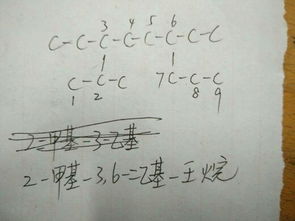 3 4 5 6
C-C-C-C-C-C-C-C
C-C-C 7C-C-C
1 2 8 9
2-甲基-3-乙基
2-甲基-3,6-二乙基-壬烷